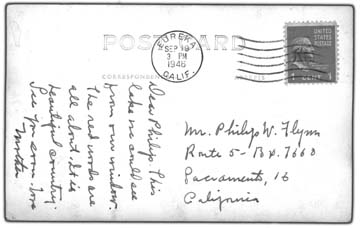 POSTCARD
CORRESPONDEN
EUREKA
SEP 19
3 PM
1946
CALIF.
UNITED
STATES
POSTAGE
1 CENT 1
Dear Philip This
lake we could see
from our window.
The redwoods are
all about. It is
beautiful country.
See you soon. Love
Mother
Mr. Philip W. Flynn
Route 5 - Box. 7660
Sacramento, 16
California